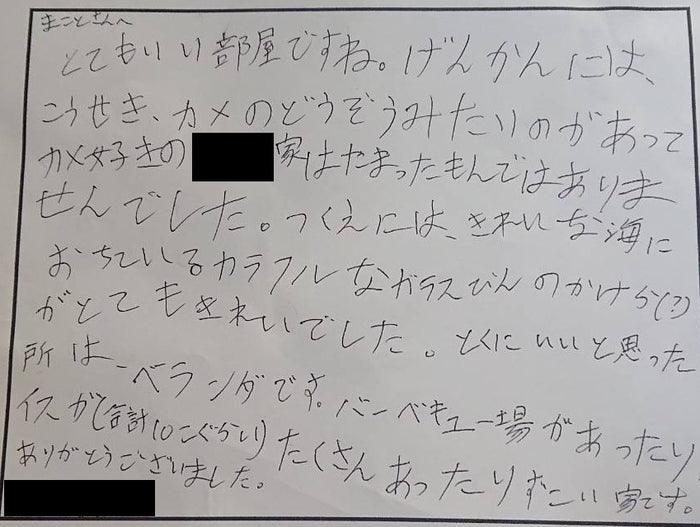 まことさんへ
とてもいい部屋ですね。げんかんには、
こうせき、カメのどうぞうみたいのがあって
カメ好きの 家はたまったもんではありま
せんでした。つくえには、きれいな海に
おちているカラフルなガラスびんのかけら(?)
がとてもきれいでした。とくにいいと思った
所は、ベランダです。バーベキュー場があったり
イスが(合計10こぐらい)たくさんあったりすごい家です。
ありがとうございました。